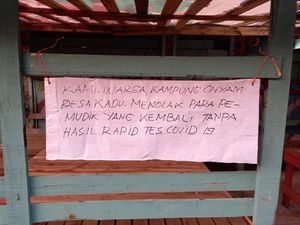 KAMI WARGA KAMPUNG ONYAM
DESA KADU. MENOLAK PARA PE-
MUDIK YANG KEMBALI TANPA
HASIL RAPID TES COVID 19